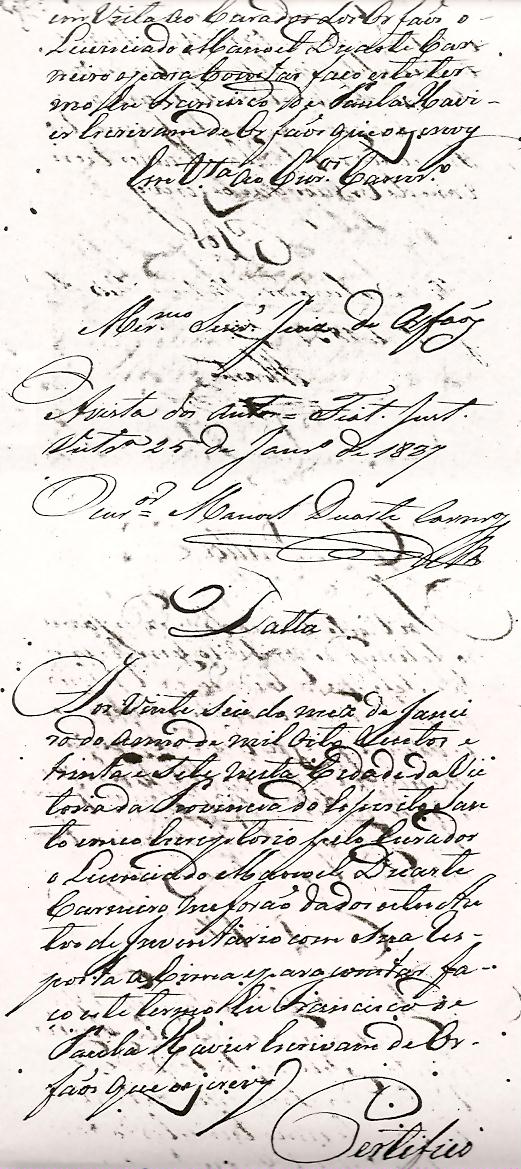 em Vista ao Curador dos Orfaõs o
Licenciado Manoel Duarte Car-
neiro e para Constar faço este ter-
mo Eu Francisco de Paula Xavi-
er Escrivam de Orfaõs que o escrevy
Em V.ta ao Cur.or Carnr.o
Mer.mo Senr. Juiz de Orfaõs
A vista dos Autos = Fiat Just.
Victr.a 25 de Janr.o de 1837
O Cur.or Manoel Duarte Carnr.o
Datta
Aos Vinte Seis do mez de Janei
ro do anno de mil oito Centos e
trinta e Sete nesta Cidade da Vic
toria da Provincia do Espirito San
to em meo Escriptorio pelo Curador
o Licenciado Manoel Duarte
Carneiro me foraõ dados estes Au
tos de Inventario com Sua Res-
posta a Cima e para constar fa-
ço este termo Eu Francisco de
Paula Xavier Escrivam de Or-
faõs que o escrevy
Certifico